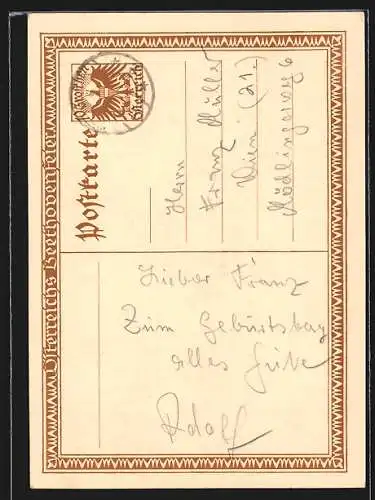 Österreichs Beethovenfeier
Postkarte
Österreich
Herrn
Franz Müller
Wien (21.)
Mödlingerweg 6
Lieber Franz
Zum Geburtstag
alles Gute
Rudolf